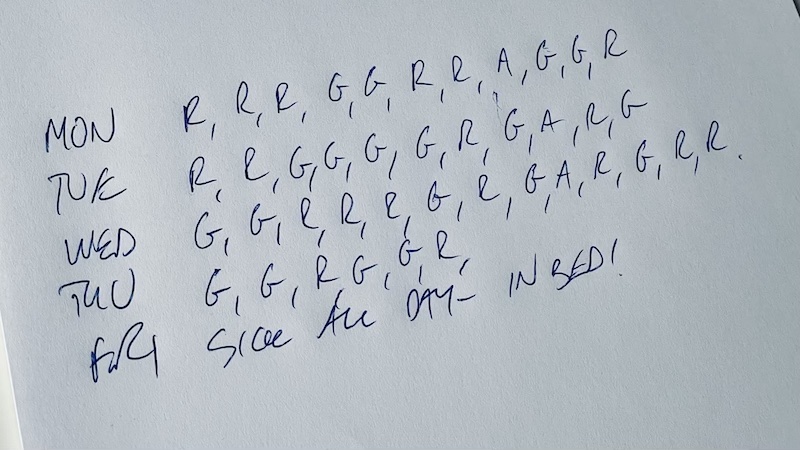 MON R, R, R, G, G, R, R, A, G, G, R
TUE R, R, G, G, G, G, R, G, A, R, G
WED G, G, R, R, R, G, R, G, A, R, G, R, R.
THU G, G, R, G, G, R,
FRI SICK ALL DAY - IN BED!